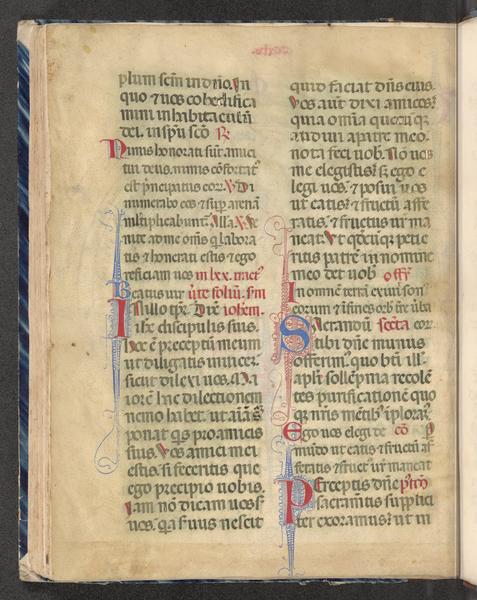 plum scm in dno. In
quo ⁊ uos cohedifica
mini in habitaculum
dei. in spu sco R
Nimis honorati sut amici
tui deus. nimis cofortat
est principatus eor. V Di
numerabo eos ⁊ sup arena
multiplicabunt. Alla V Ve
nite ad me oms q labora
tis ⁊ honerati estis ⁊ ego
reficiam uos in lxx. tract
Beatus uir
In illo tpr. Dix iohem.
ihc discipulis suis.
Hoc e preceptum meum
ut diligatis inuicem
sicut dilexi uos. Ma
iorem hac dilectionem
nemo habet. ut aiam
ponat qs pro amicis
suis. Vos amici mei
estis. si feceritis que
ego precipio uobis.
Iam non dicam uos s
uos. qa suus nescit
quid faciat dns eius.
Vos aut dixi amicos.
quia omia quecuq
audiui a patre meo.
nota feci uob. Non uos
me elegistis. s; ego e
legi uos. ⁊ posui uos
ut eatis. ⁊ fructu affe
ratis. ⁊ fructus ur ma
neat. Vt qdcuq petie
ritis patre in nomine
meo det uob off
In omne terra exiuit son
eorum ⁊ i fines orb tre uba
Sacrandum secta eor.
tibi dne munus
offerim. quo bti ill.
apli sollepnia recole
tes purificatione quo
q nris metib iploram.
Ego uos elegi de co
mudo ut eatis ⁊ fructu af
feratis ⁊ fruct ur maneat
Perceptis dne pco
sacramtis supplici
ter exoramus. ut in